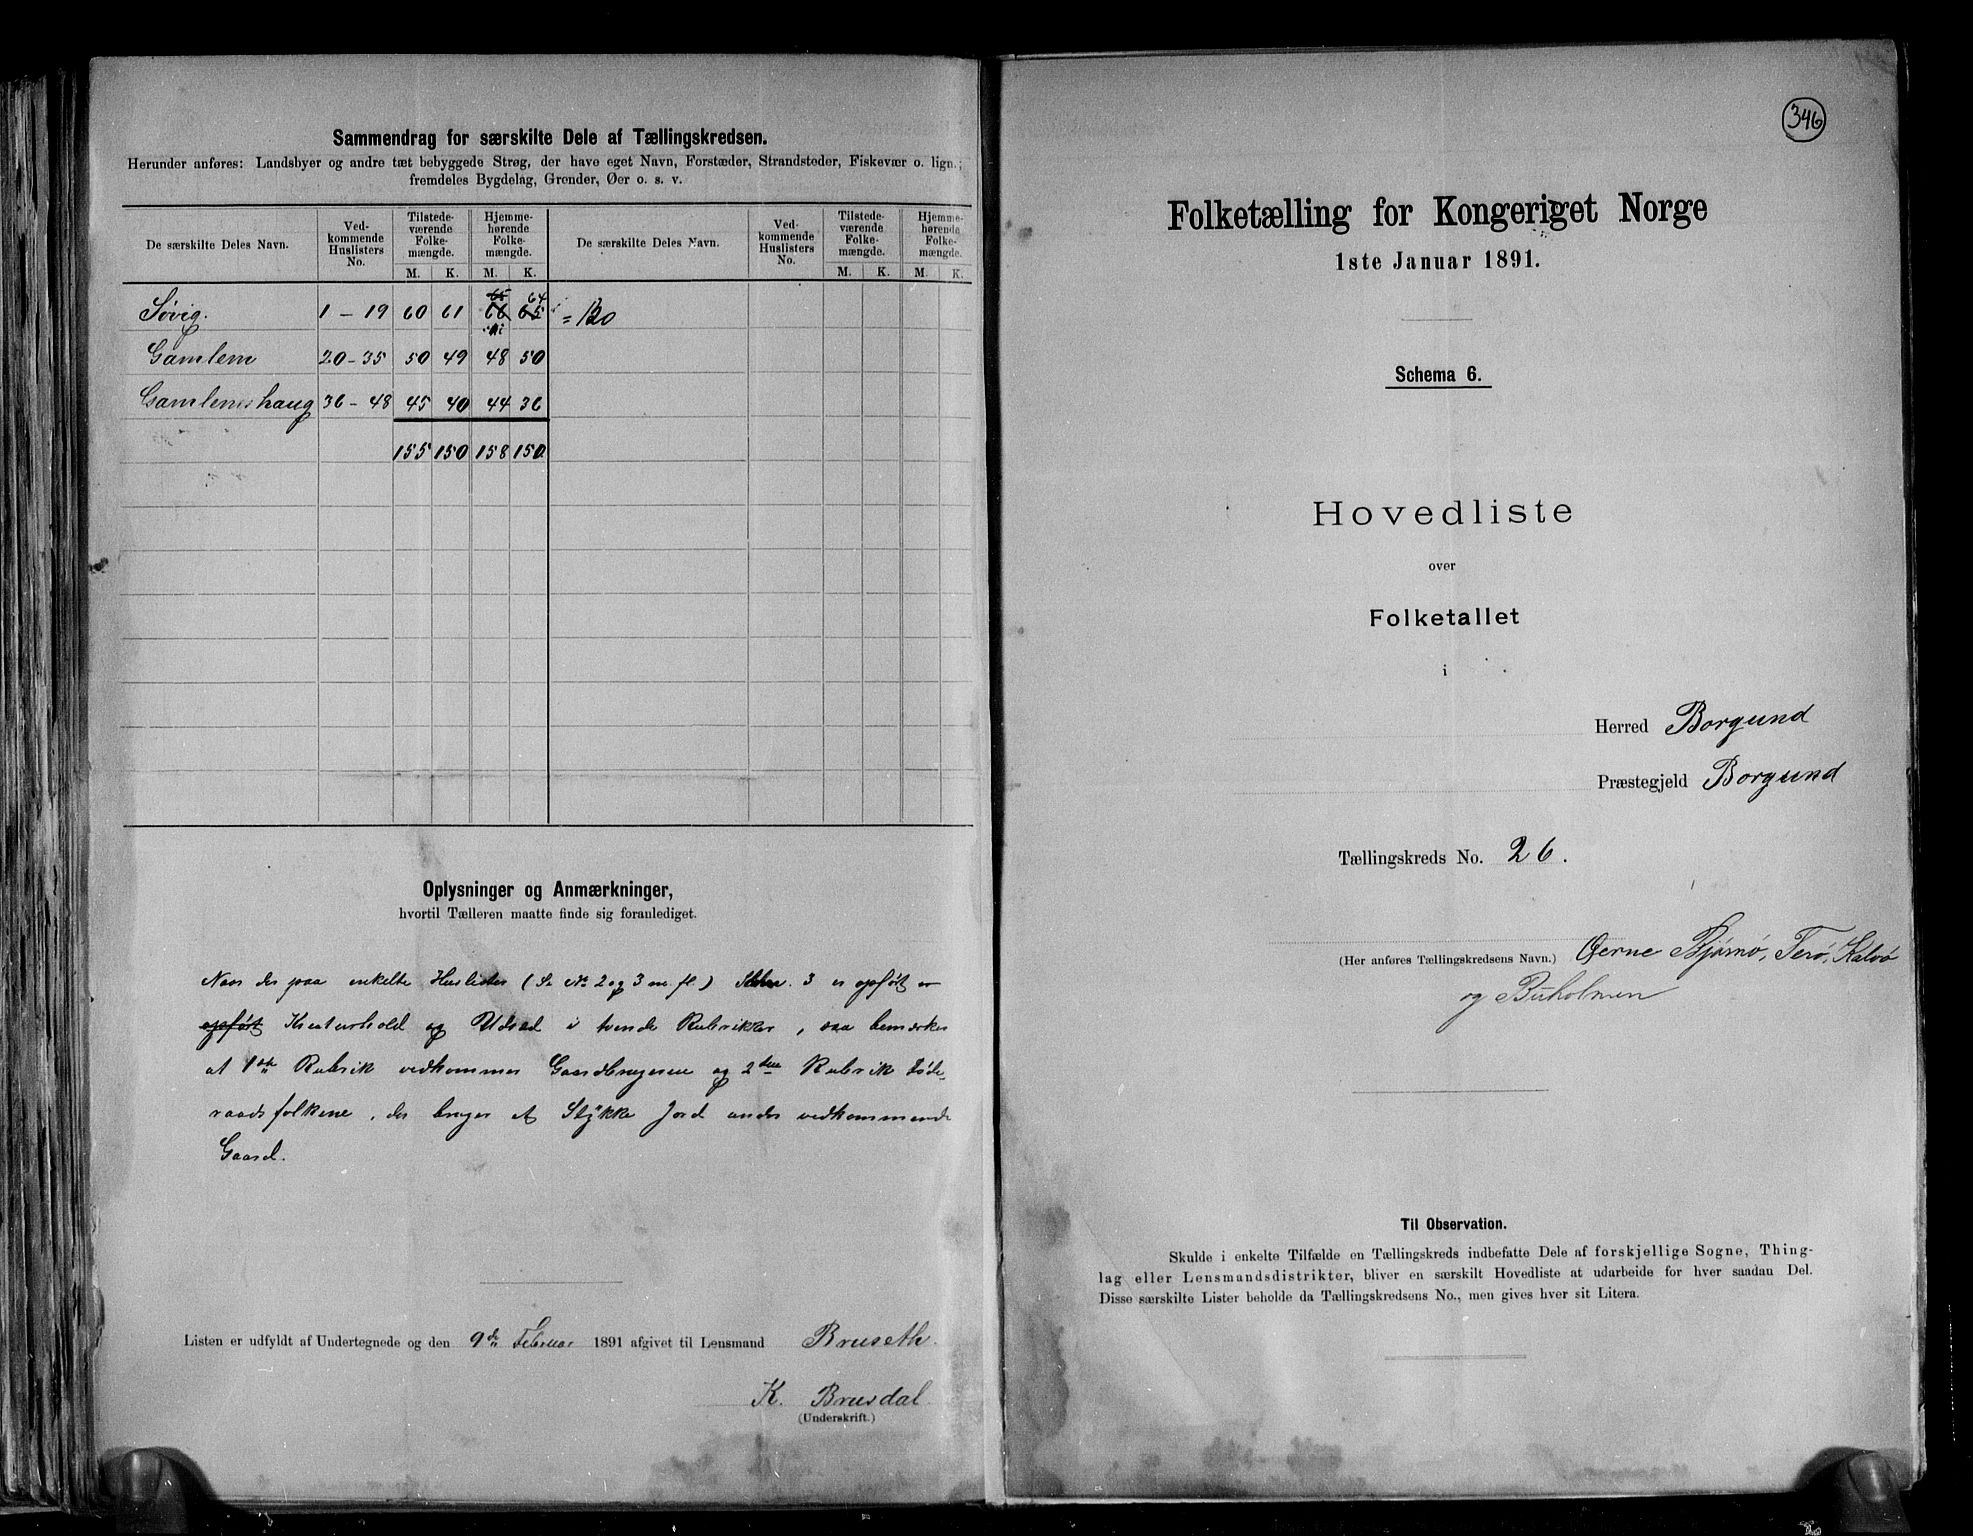 Sammendrag for særskilte Dele af Tællingskredsen.
Herunder anføres: Landsbyer og andre tæt bebyggede Strøg, der have eget Navn, Forstæder, Strandsteder, Fiskevær o. lign.;
fremdeles Bygdelag, Grender, Øer o. s. v.
De særskilte Deles Navn. Vedkommende Huslisters No. Tilstedeværende Folkemængde. M. K. Hjemmehørende Folkemængde. M. K. De særskilte Deles Navn. Vedkommende Huslisters No. Tilstedeværende Folkemængde. M. K. Hjemmehørende Folkemængde. M. K.
64
Søvig. 1 - 19 60 61 66 65 = 130
Gamlem 20 - 35 50 49 48 50
Gamlemshaug 36 - 48 45 40 44 36
155 150 158 150
Oplysninger og Anmærkninger,
hvortil Tælleren maatte finde sig foranlediget.
Naar der paa enkelte Huslister (Se No 2 og 3 m. fl.) 3 er opført
opført Kreaturhold og Udsæd i tvende Rubrikker, saa bemærkes
at 1ste Rubrik vedkommer Gaardbrugerne og 2den Rubrik Føde-
raadsfolkene, der bruger et Stykke Jord under vedkommende
Gaard.
Listen er udfyldt af Undertegnede og den 9de Februar 1891 afgivet til Lensmand Bruseth.
K. Brusdal
(Underskrift.)
346
Folketælling for Kongeriget Norge
1ste Januar 1891.
Schema 6.
Hovedliste
over
Folketallet
i
Herred Borgund
Præstegjeld Borgund
Tællingskreds No. 26.
(Her anføres Tællingskredsens Navn.) Øerne Bjørnø, Terø, Kalvø
og Buholmen
Til Observation.
Skulde i enkelte Tilfælde en Tællingskreds indbefatte Dele af forskjellige Sogne, Thing-
lag eller Lensmandsdistrikter, bliver en særskilt Hovedliste at udarbeide for hver saadan Del.
Disse særskilte Lister beholde da Tællingskredsens No., men gives hver sit Litera.